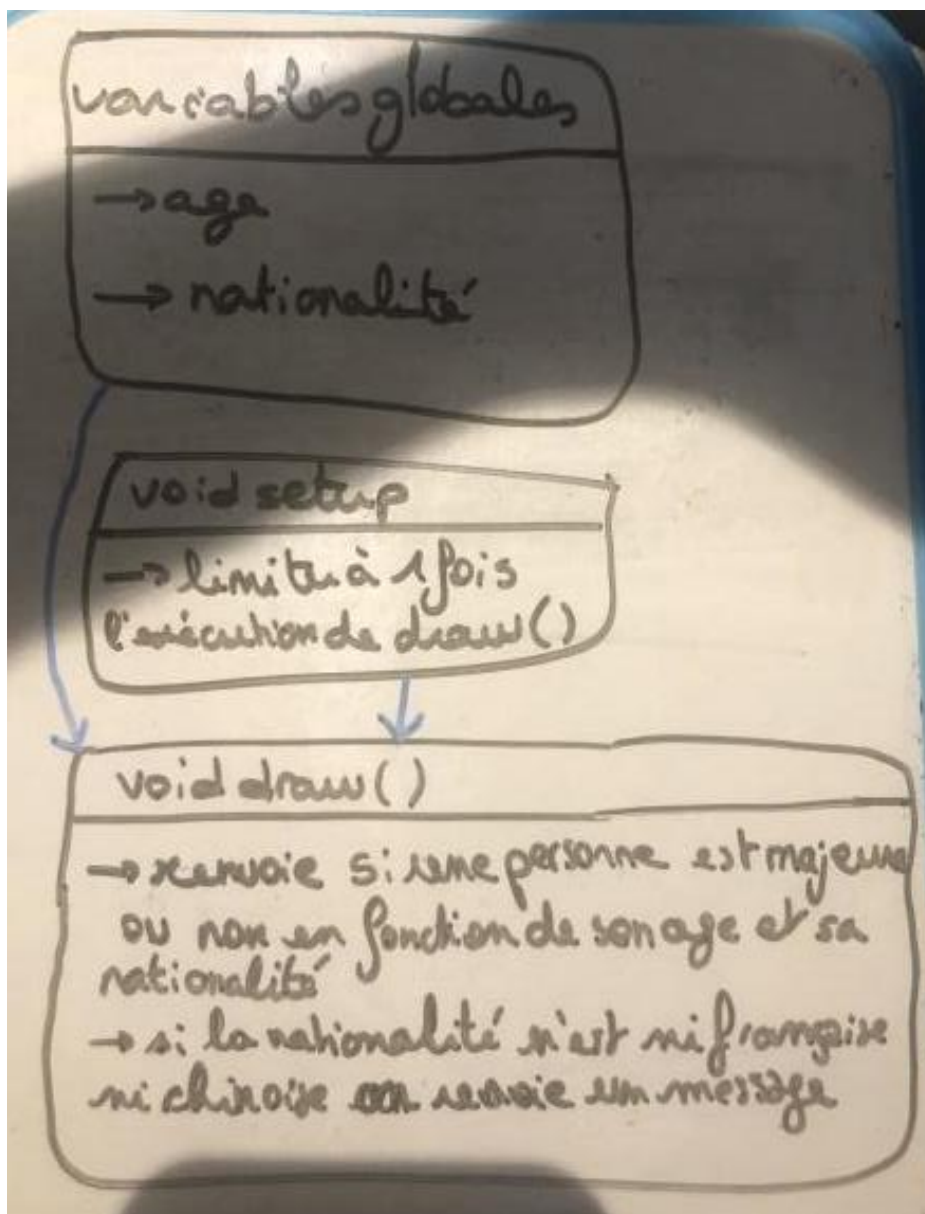 variables globales
→ age
→ nationalité
void setup
→ limiter à 1 fois
l'exécution de draw()
void draw()
→ renvoie si une personne est majeure
ou non en fonction de son age et sa
nationalité
→ si la nationalité n'est ni française
ni chinoise on renvoie un message